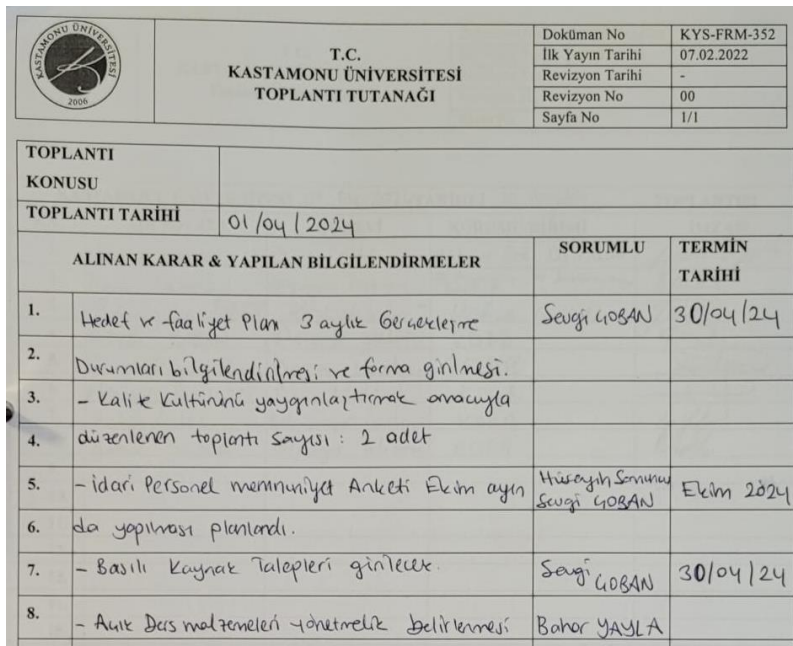 KASTAMONU ÜNİVERSİTESİ
2006
T.C.
KASTAMONU ÜNİVERSİTESİ
TOPLANTI TUTANAĞI
Doküman No KYS-FRM-352
İlk Yayın Tarihi 07.02.2022
Revizyon Tarihi -
Revizyon No 00
Sayfa No 1/1
TOPLANTI
KONUSU
TOPLANTI TARİHİ 01/04/2024
ALINAN KARAR & YAPILAN BİLGİLENDİRMELER
SORUMLU
TERMİN
TARİHİ
1. Hedef ve faaliyet Plan 3 aylık Gerçekleşme Sevgi ÇOBAN 30/04/24
2. Durumları bilgilendirilmesi ve forma girilmesi.
3. - Kalite Kültürünü yaygınlaştırmak amacıyla
4. düzenlenen toplantı sayısı : 2 adet
5. - idari Personel memnuniyet Anketi Ekim ayın Hüseyin Sevgi ÇOBAN Ekim 2024
6. da yapılması planlandı.
7. - Basılı Kaynak Talepleri girilecek. Sevgi ÇOBAN 30/04/24
8. - Açık Ders malzemeleri yönetmelik belirlenmesi Bahar YAYLA